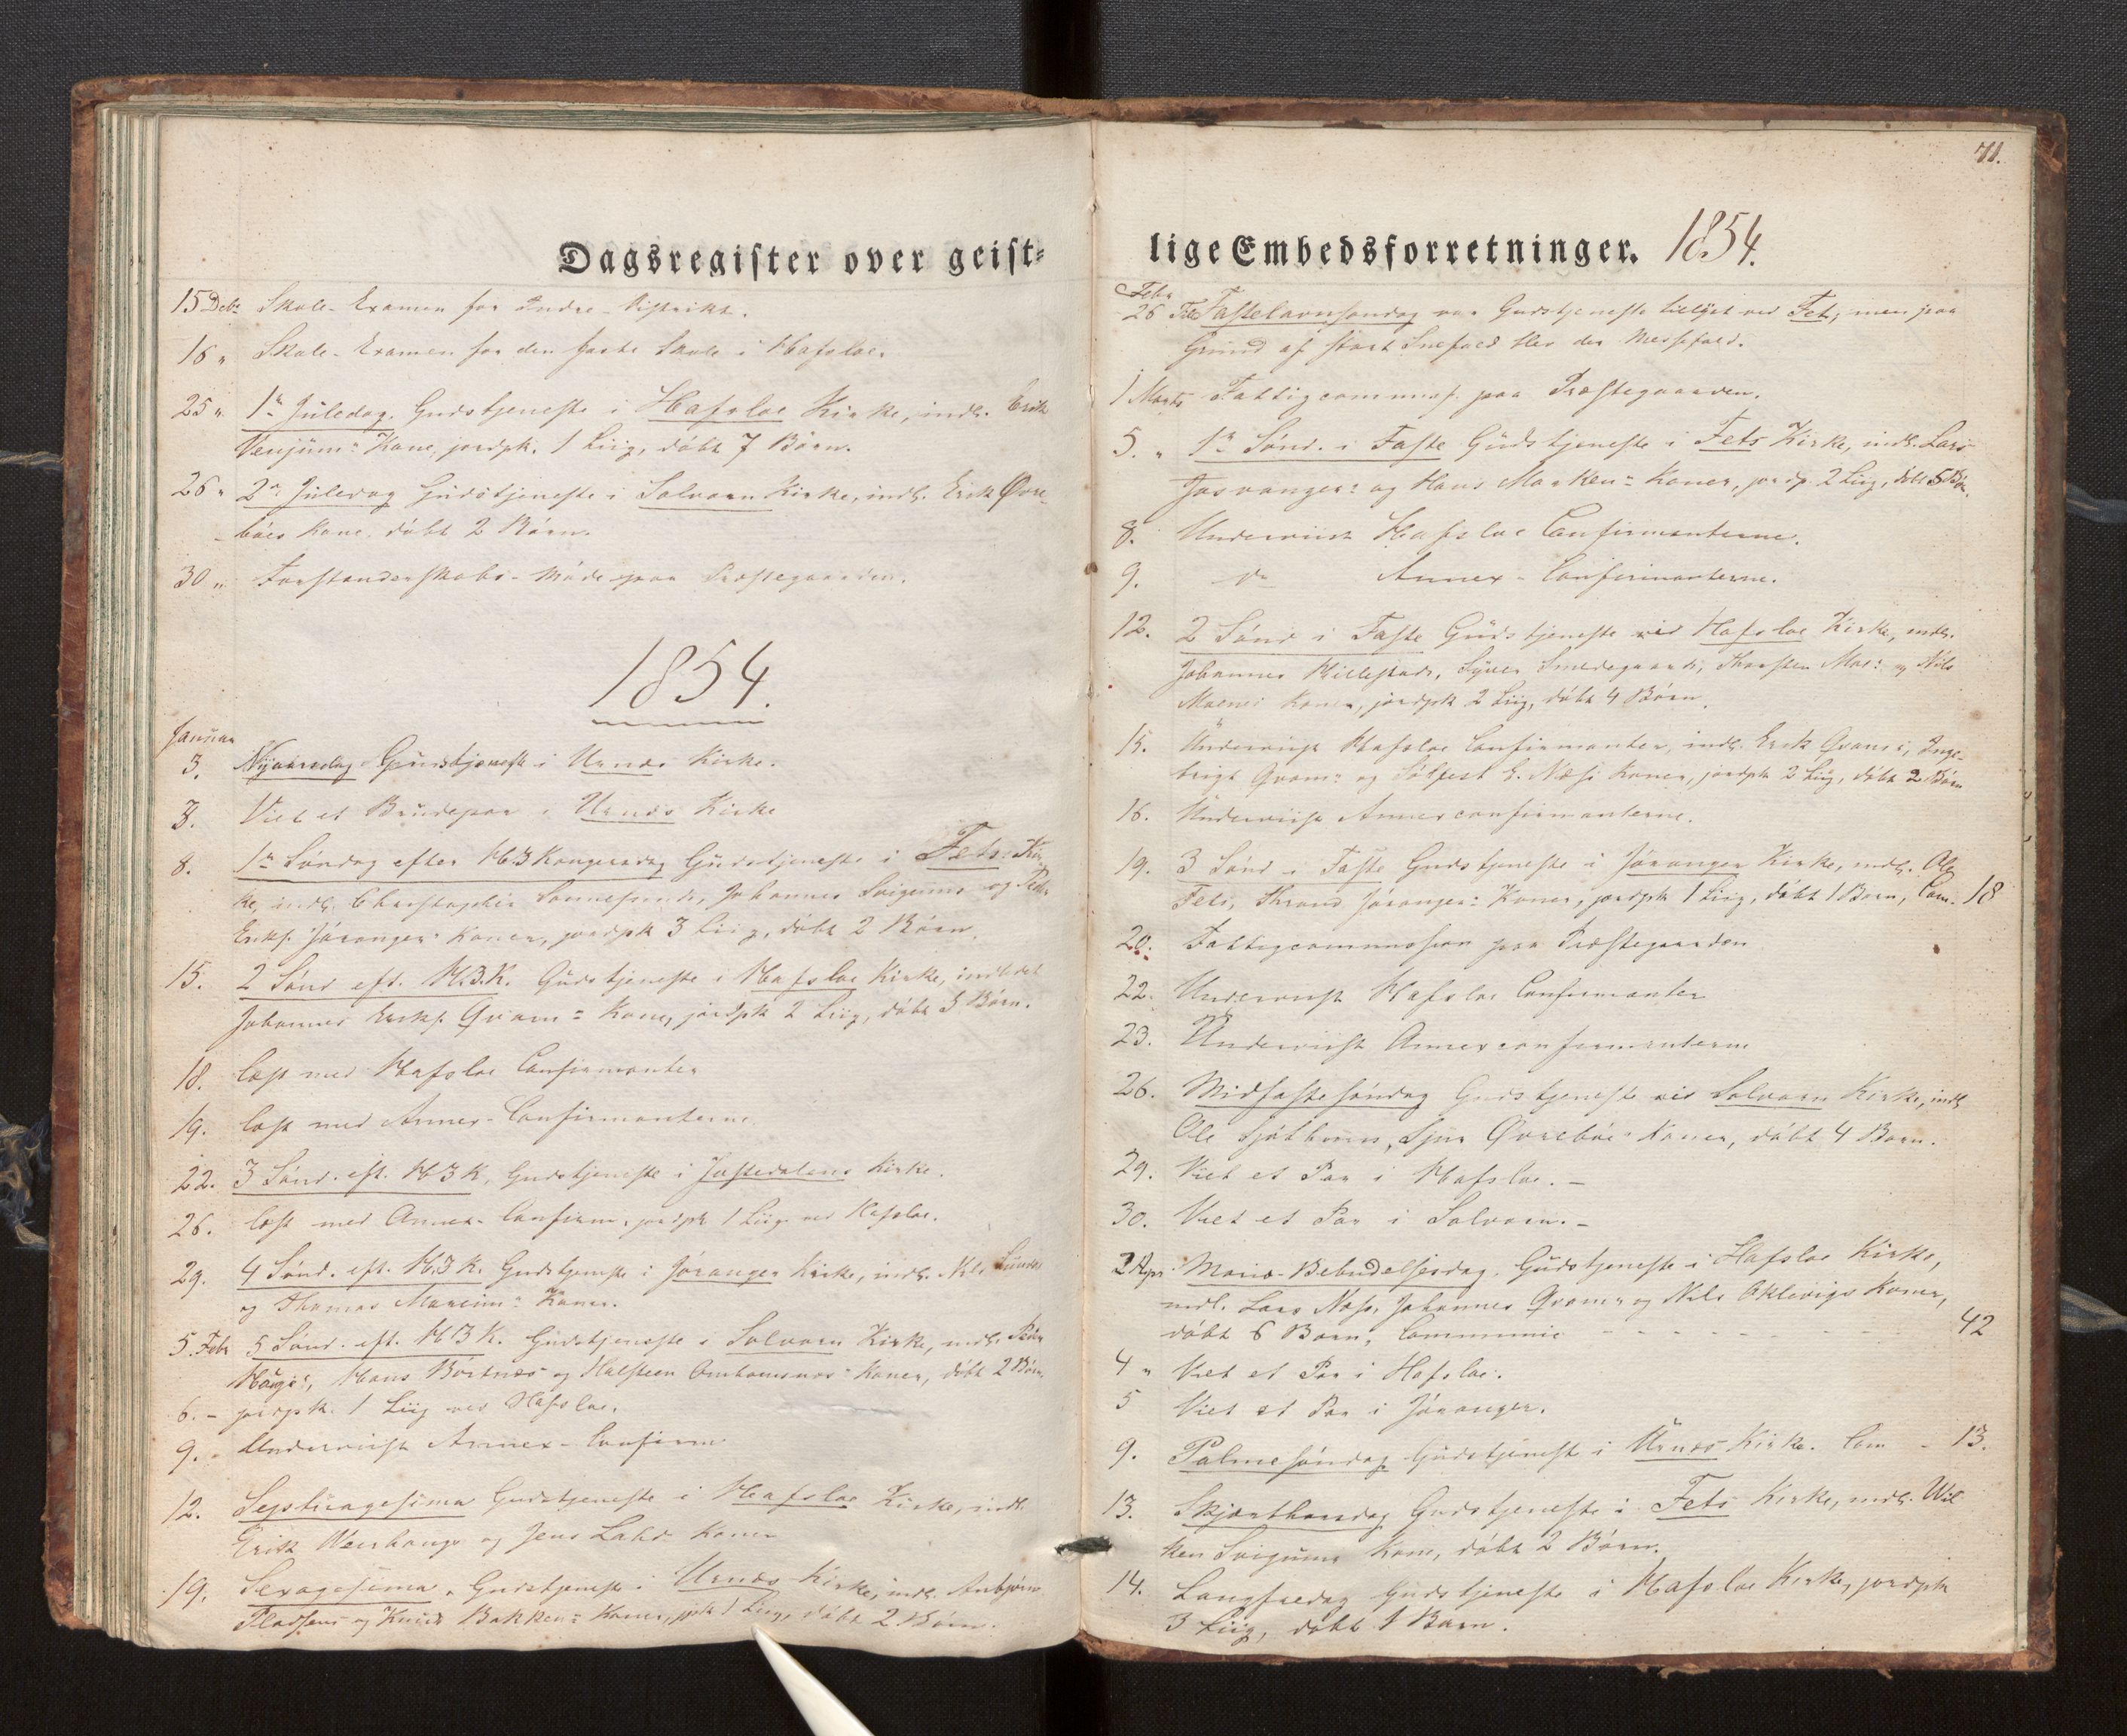 Dagsregister over geist-
15 Decbr Skole-Examen for Indre-Distrikt.
16 " Skole-Examen for den faste Skole i Hafsloe.
25 " 1ste Juledag. Gudstjeneste i Hafsloe Kirke, indl. Erik
Venjums Kone, jordpk. 1 Liig, döbt 7 Börn.
26 " 2den Juledag Gudstjeneste i Solvorn Kirke, indl. Erik Øvre-
böes Kone, döbt 2 Börn.
30 " Forstanderskabs-Möde paa Præstegaarden.
1854.
Januar
3. Nyaarsdag Gudstjeneste i Urnæs Kirke.
3. Viet et Brudepar i Urnæs Kirke
8. 1ste Söndag efter H3Kongersdag Gudstjeneste i Fets Kir-
ke, indl. Christopher Johannes Svigums og Peder
Eriks. Joranger= Koner, jordpk 3 Liig, döbt 2 Börn.
15. 2 Sönd eft. H.3.K. Gudstjeneste i Hafsloe Kirke, indledet
Johannes Eriks. Qvam= Kone, jordpk 2 Liig, döbt 3 Börn.
18. Læst med Hafsloe Confirmanter
19. Læst med Annex-Confirmanterne
22. 3 Sönd. eft. H3K, Gudstjeneste i Jostedalens Kirke.
26. Læst med Annex-Confirm. jordpk 1 Liig ved Hafsloe.
29. 4 Sönd. eft. H.3K. Gudstjeneste i Joranger Kirke, indl. Nils
og Thomas Mareims Koner.
5. Febr 5 Sönd. eft. H3K. Gudstjeneste i Solvorn Kirke, indl. Peder
Hauges, Hans Börtnæs og Halsteen Koner, döbt 2 Börn.
6. - jordpk. 1 Liig ved Hafsloe.
9. - Underviist Annex-Confirm
12. Septuagesima Gudstjeneste i Hafsloe Kirke, indl.
Erik og Jens Lahds Koner
19. Sexagesima. Gudstjeneste i Urnæs Kirke, indl. Anbjörn
Pladsens og Knud Bakken= Koner, jpk 1 Liig, döbt 2 Börn.
71.
lige Embedsforretninger. 1854.
Febr
26 Til Fastelavnsöndag var Gudstjeneste tillyst ved Fet, men paa
Grund af stort Snefald blev der Messefald.
1 Marts Fattigcommiss. paa Præstegaarden.
5. " 1ste Sönd. i Faste Gudstjeneste i Fets Kirke, indl. Lars
og Hans Marken= Koner, jordp. 2 Liig, döbt 5 Börn.
8. Underviist Hafsloe Confirmanterne.
9. do Annex-Confirmanterne.
12. 2 Sönd i Faste Gudstjeneste ved Hafsloe Kirke, indl.
Johannes Hillestads, Syver Smedegaards, Thorsten Moe= og Nils
Moenes Koner, jordpk 2 Liig, döbt 4 Börn.
15. Underviist Hafsloe Confirmanter, indl. Erik Qvams, Inge-
brigt Qvam= og Sölfest E. Næss Koner, jordpk 2 Liig, döbt 2 Börn
16. Underviist Annexconfirmanterne.
19. 3 Sönd i Faste Gudstjeneste i Joranger Kirke, indl. Ole
Fets, Thrond Joranger= Koner, jordpk 1 Liig, döbt 1 Barn, Com. 18
20. Fattigcommission paa Præstegaarden
22. Underviist Hafsloe Confirmanter
23. Underviist Annexconfirmanterne
26. Midfastesöndag Gudstjeneste ved Solvorn Kirke, indl
Ole Sjur Øvreböe= Koner, döbt 4 Börn.
29. Viet et Par i Hafsloe. -
30. Viet et Par i Solvorn. -
2 Apr. Mariæ-Bebudelsesdag. Gudstjeneste i Hafsloe Kirke,
indl. Lars Næss, Johannes Qvam= og Nils Oklevigs Koner,
döbt 6 Börn, Communic - - - - - 42
4 " Viet et Par i Hafsloe.
5 Viet et Par i Joranger.
9. Palmesöndag Gudstjeneste i Urnæs Kirke. Com - 13.
13. Skjærthorsdag Gudstjeneste i Fets Kirke, indl. Wil
ken Svigums Kone, döbt 2 Börn.
14. Langfredag Gudstjeneste i Hafsloe Kirke, jordpk
3 Liig, döbt 1 Barn.